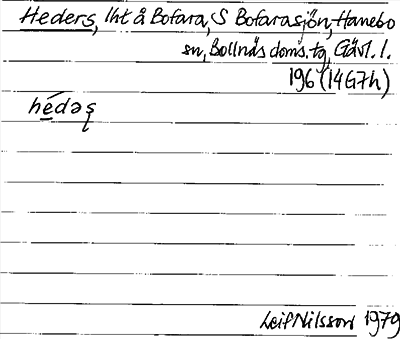 Heders, lht å Bofara, S Bofarasjön, Hanebo
sn, Bollnäs doms. tg, Gävl. l.
196 (14G7h)
hédəʂ
Leif Nilsson 1979